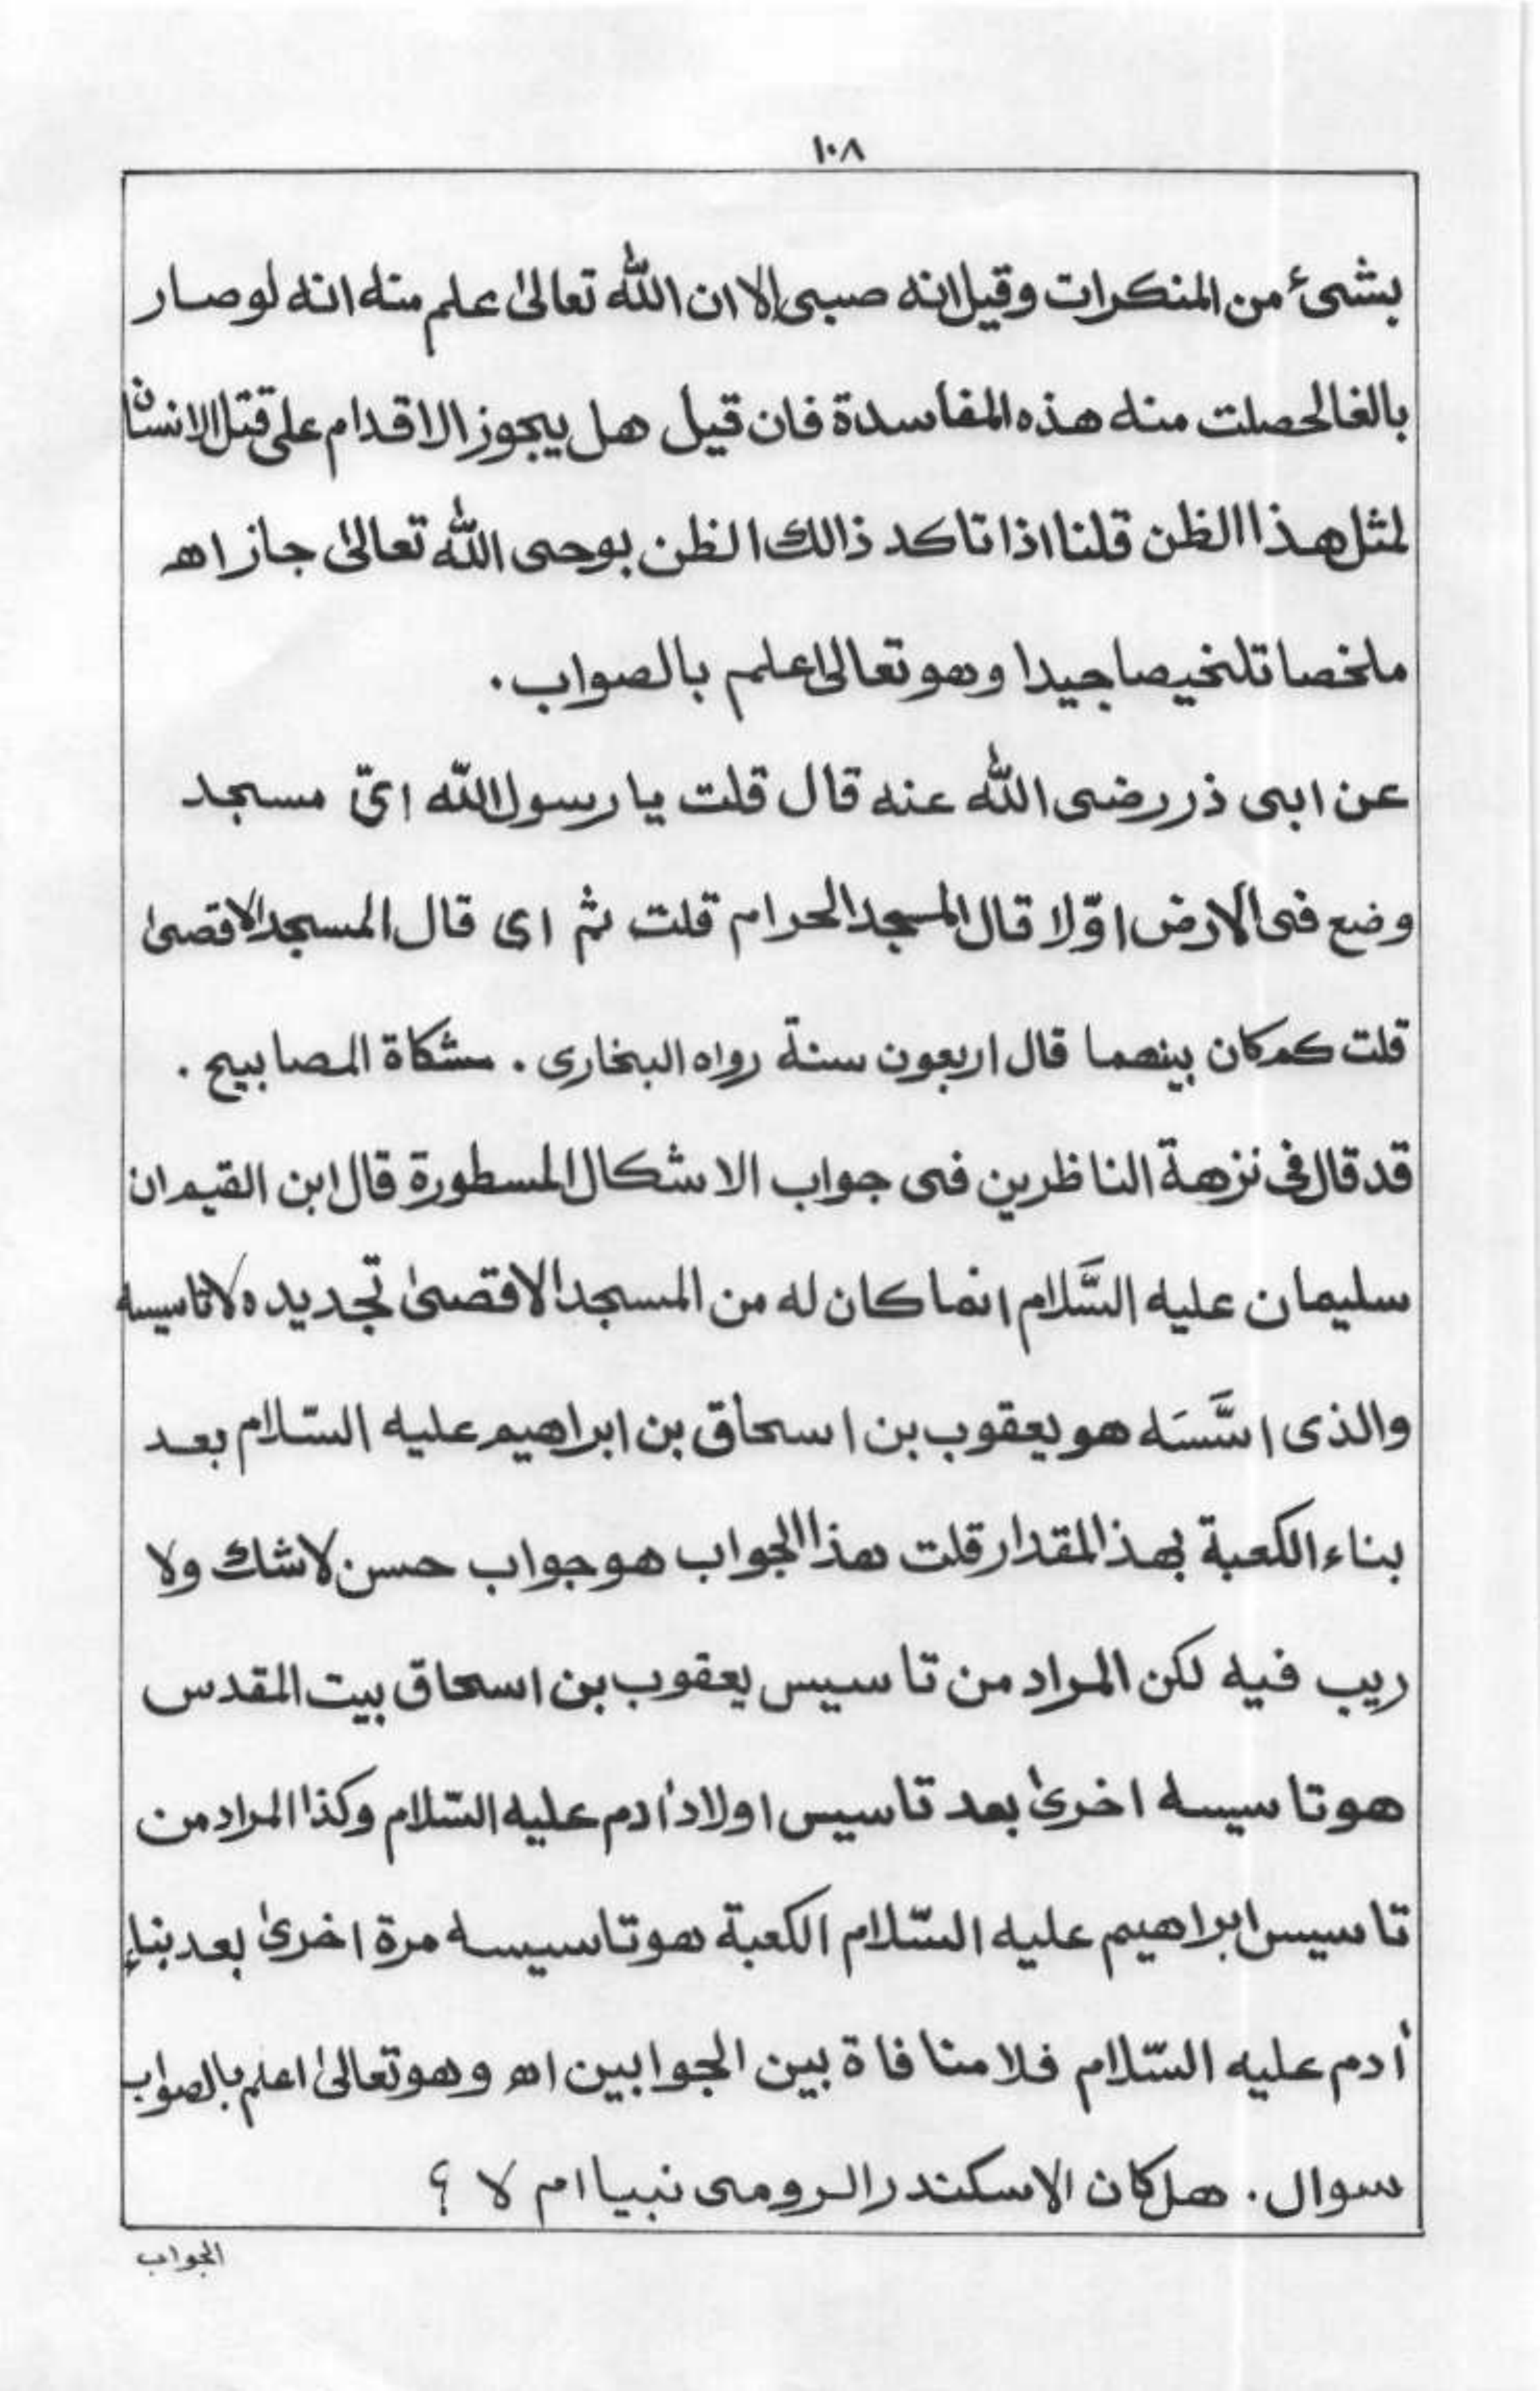 ١٠٨
بشئ من المنكرات وقيل انه صبى إلا ان الله تعالىٰ علم منه انه لوصار
بالغا لحصلت منه هذه المفاسدة فان قيل هل يجوز الاقدام على قتل الانسان
لمثل هذا الظن قلنا اذا تاكد ذالك الظن بوحى الله تعالىٰ جاز اھ
ملخصا تلخيصا جيدا وهو تعالىٰ اعلم بالصواب.
عن ابى ذر رضى الله عنه قال قلت يا رسول الله اىّ مسجد
وضع فى الارض اوّلا قال المسجد الحرام قلت ثم اى قال المسجد الاقصىٰ
قلت كم كان بينهما قال اربعون سنة رواه البخارى. مشكاة المصابيح.
قد قال فى نزهة الناظرين فى جواب الاشكال المسطورة قال ابن القيم ان
سليمان عليه السَّلام انما كان له من المسجد الاقصىٰ تجديده لا تاسيسه
والذى اسَّسَه هو يعقوب بن اسحاق بن ابراهيم عليه السّلام بعد
بناء الكعبة بهذ المقدار قلت هذا الجواب هو جواب حسن لاشك ولا
ريب فيه لكن المراد من تاسيس يعقوب بن اسحاق بيت المقدس
هو تاسيسه اخرىٰ بعد تاسيس اولاد أدم عليه السّلام وكذا المراد من
تاسيس ابراهيم عليه السّلام الكعبة هو تاسيسه مرة اخرىٰ بعد بناء
أدم عليه السّلام فلا منافاة بين الجوابين اھ وهو تعالىٰ اعلم بالصواب
سوال. هل كان الاسكندر الرومى نبيا ام لا ؟
الجواب